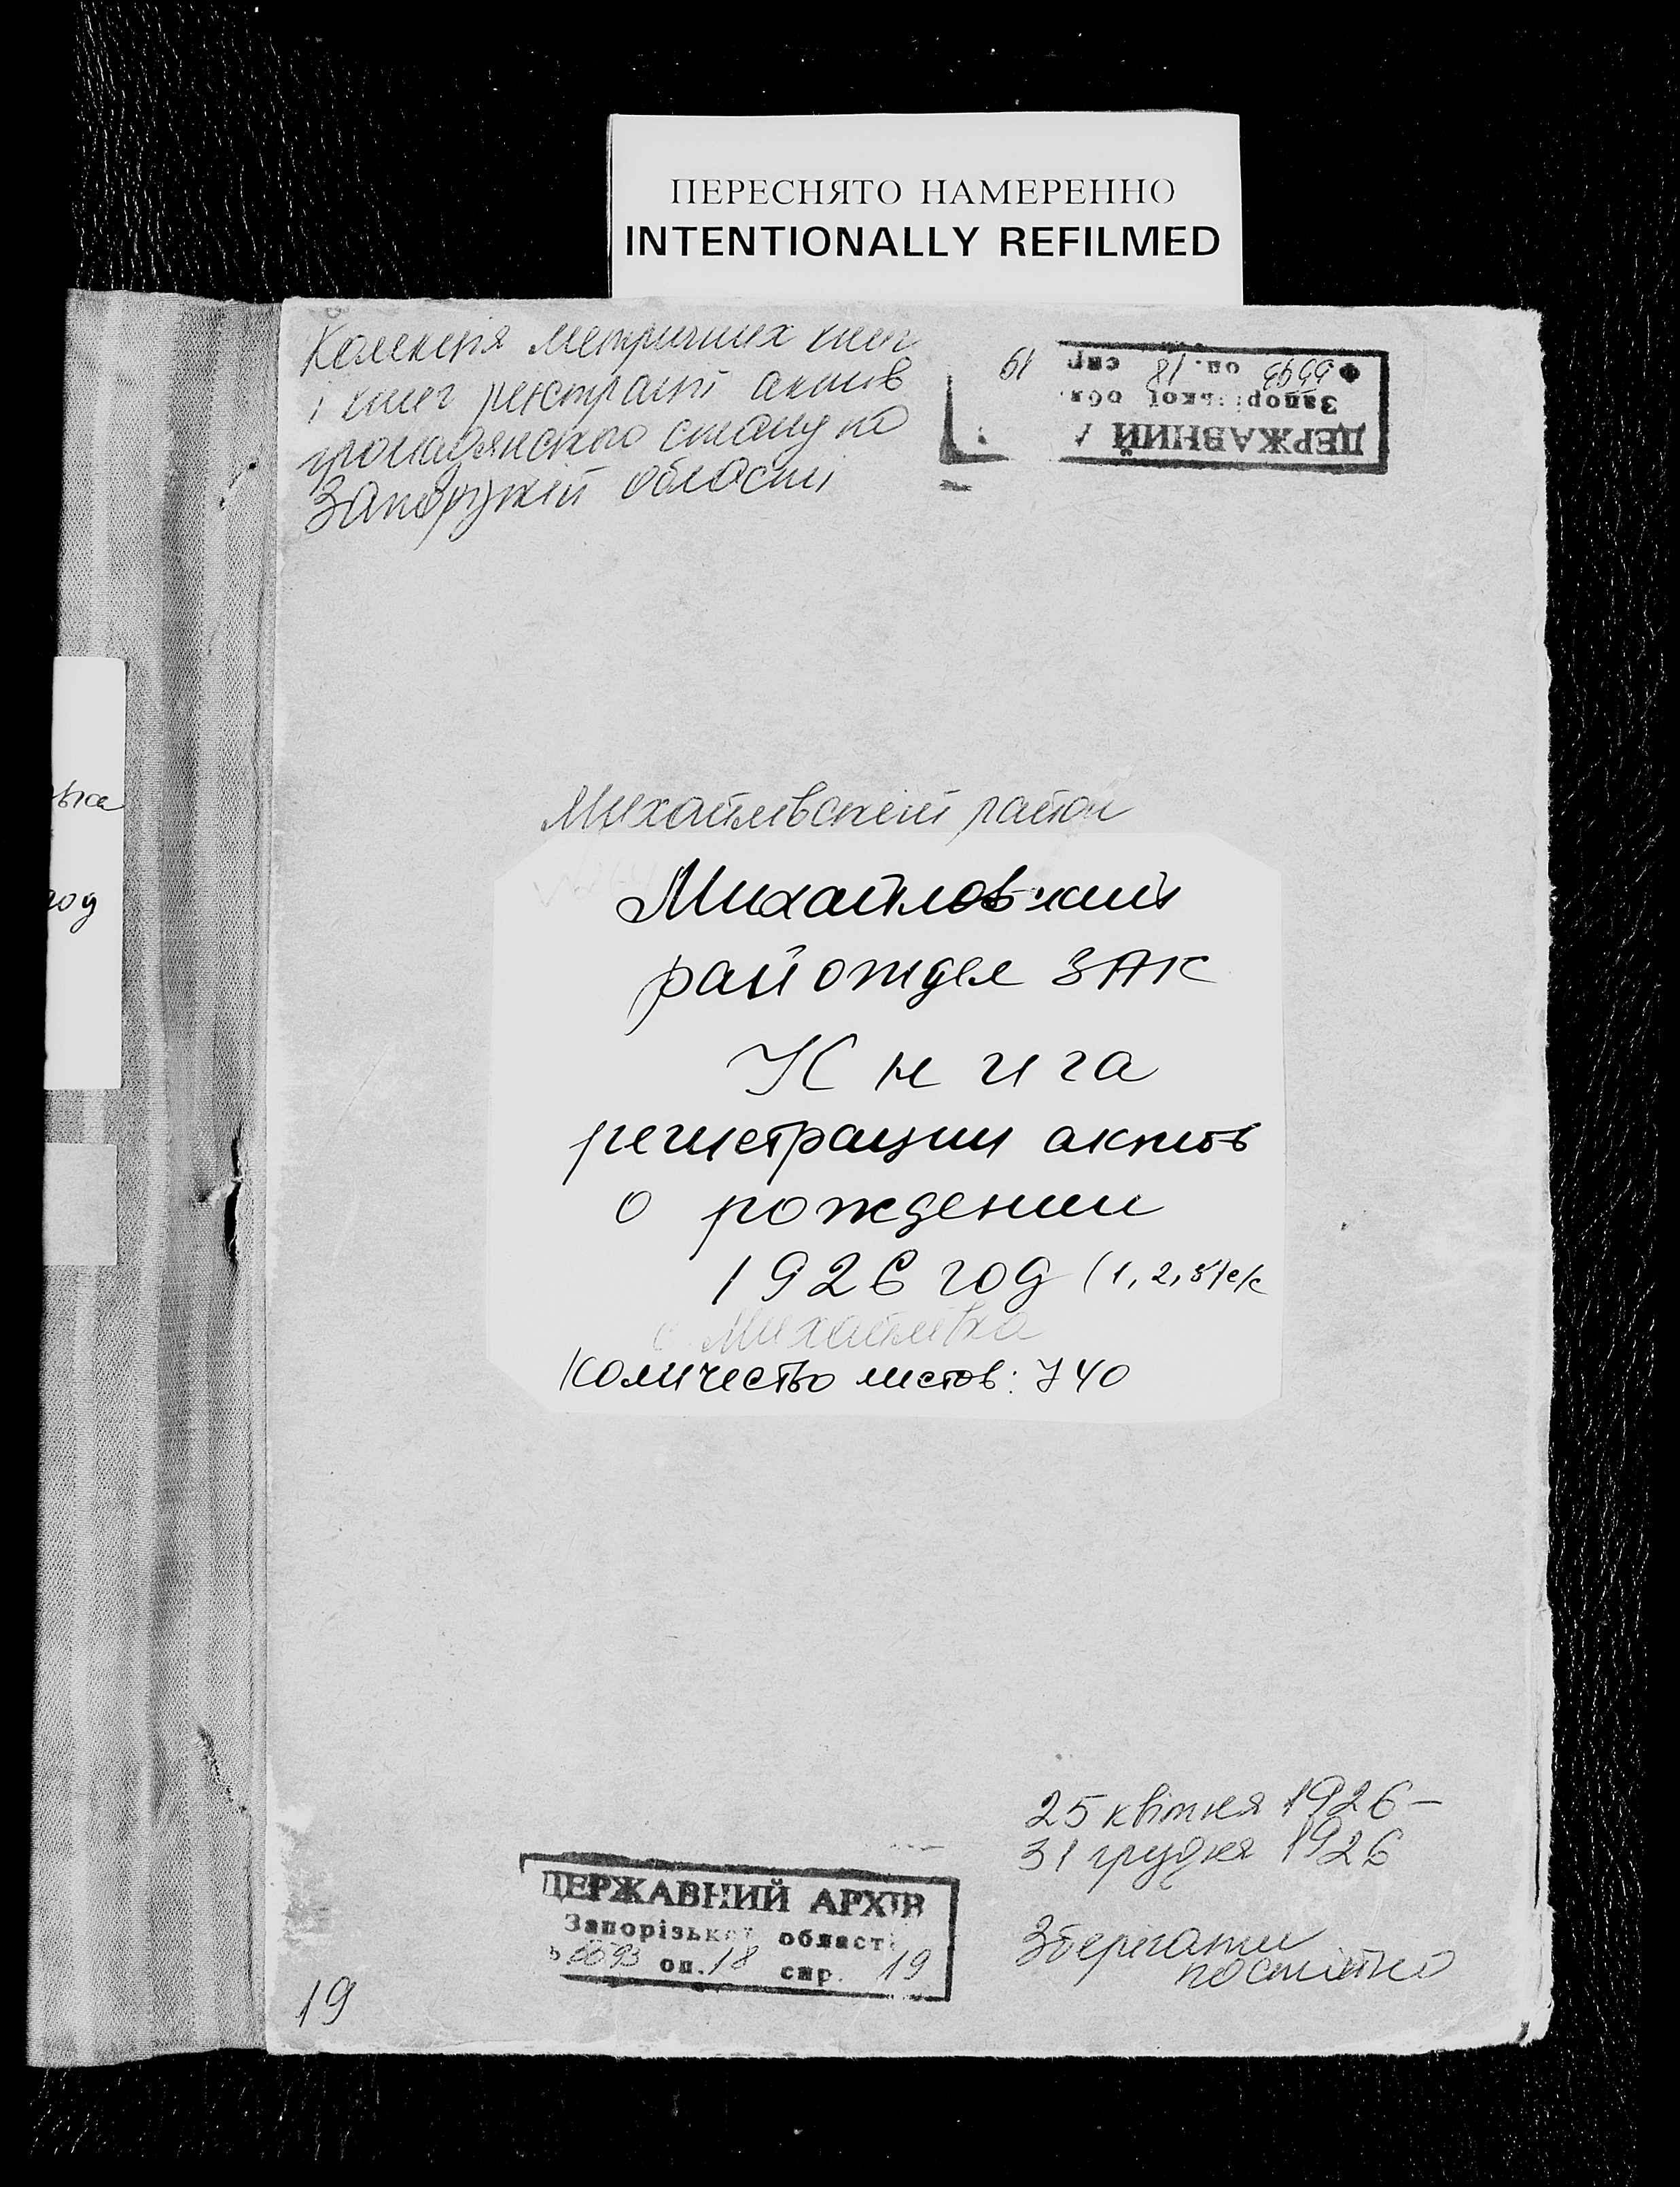 ПЕРЕСНЯТО НАМЕРЕННО
INTENTIONALLY REFILMED
Колекція метричних книг
і книг реєстрації актів
громадянського стану по
Запорізькій області
ДЕРЖАВНИЙ А
Запорізької обл.
Ф 5593 оп. 18 спр 19
ька
год
Михайлівський район
Михайловский
райотдел ЗАК
Книга
регистрации актов
о рождении
1926 год (1, 2, 3) с/с
с Михайлівка
Количество листов: 740
25 квітня 1926 —
31 грудня 1926
ДЕРЖАВНИЙ АРХІВ
Запорізької області
5593 оп. 18 спр. 19
Зберігати
постійно
19